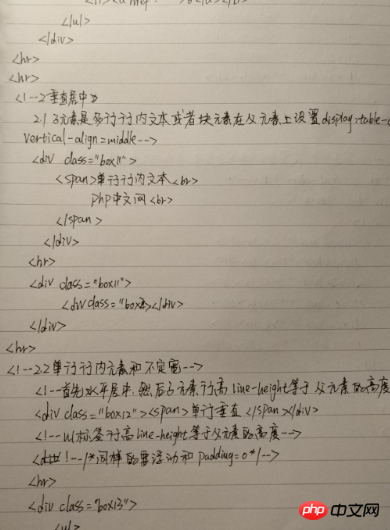 </ul>
</div>
<hr>
<hr>
<!--2垂直居中
2.1 子元素是多行行内文本或者块元素在父元素上设置display:table-c
vertical-align=middle-->
<div class="box11">
<span>单行行内文本<br>
php中文网<br>
</span>
</div>
<hr>
<div class="box11">
<div class="box2"></div>
</div>
<hr>
<!--2.2单行行内元素和不定宽-->
<!--首先水平居中,然后子元素行高line-height等于父元素的高度
<div class="box12"><span>单行垂直</span></div>
<!--ul标签行高line-height等于父元素的高度-->
<!--/*同样的要浮动和padding=0*/-->
<hr>
<div class="box13">
<ul>
php 中文网